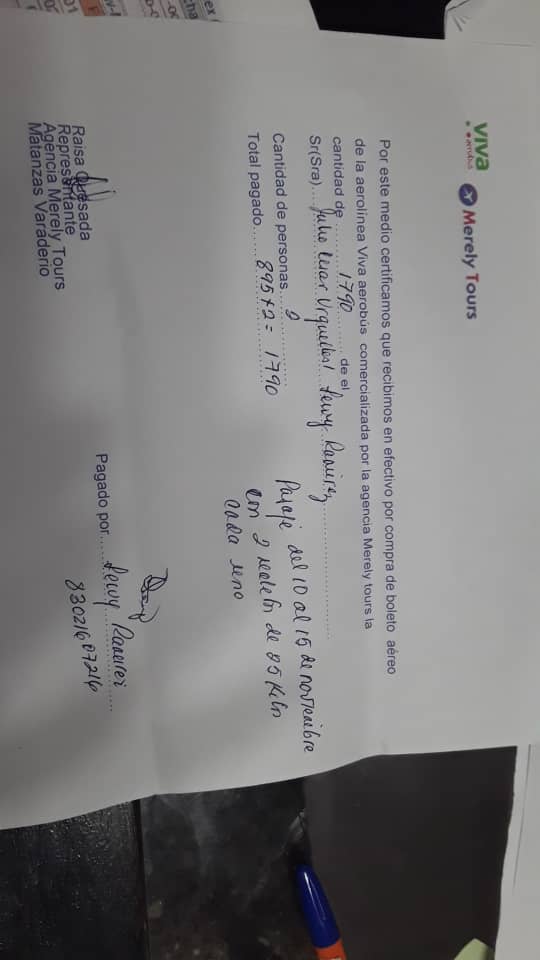 viva aerobus Merely Tours
Por este medio certificamos que recibimos en efectivo por compra de boleto aéreo
de la aerolínea Viva aerobús comercializada por la agencia Merely tours la
cantidad de 1790 de el
Sr(Sra) Julio Cesar Ramirez
Cantidad de personas 2
Total pagado 895x2= 1790
Pasaje del 10 al 15 de noviembre
con 2 maletas de 25 Kilos
cada uno
Pagado por Ramirez
83021607216
Raisa Quesada
Representante
Agencia Merely Tours
Matanzas Varaderio